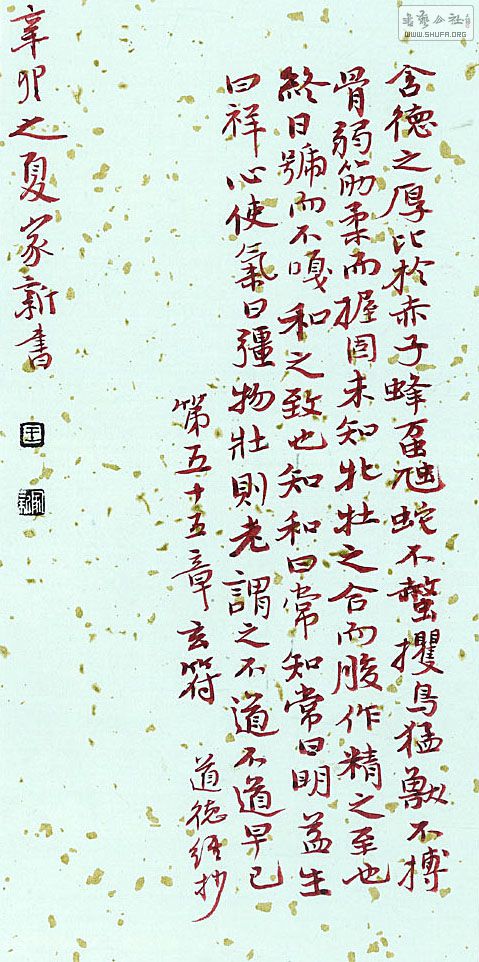 書藝公社
WWW.SHUFA.ORG
含德之厚比於赤子蜂虿虺蛇不螫攫鳥猛獸不搏
骨弱筋柔而握固未知牝牡之合而朘作精之至也
終日號而不嗄和之致也知和曰常知常曰明益生
曰祥心使氣曰彊物壯則老謂之不道不道早已
第五十五章玄符
道德經抄
辛卯之夏家新書
王